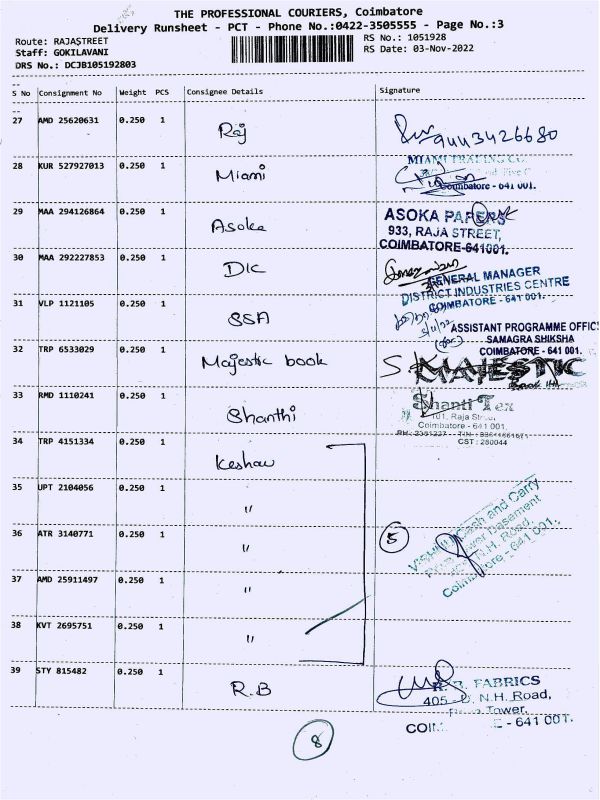 THE PROFESSIONAL COURIERS, Coimbatore
Delivery Runsheet - PCT - Phone No.:0422-3505555 - Page No.:3
Route: RAJASTREET
RS No.: 1051928
Staff: GOKILAVANI
RS Date: 03-Nov-2022
DRS No.: DCJB105192803
S No Consignment No Weight PCS Consignee Details Signature
27 AMD 25620631 0.250 1 Raj 9443426680
28 KUR 527927013 0.250 1 Miami
MIAMI TRADING CO.
Coimbatore - 641 001.
29 MAA 294126864 0.250 1 Asoka
ASOKA PAPERS
933, RAJA STREET,
COIMBATORE-641001.
30 MAA 292227853 0.250 1 DIC
GENERAL MANAGER
DISTRICT INDUSTRIES CENTRE
COIMBATORE - 641 001.
31 VLP 1121105 0.250 1 SSA
ASSISTANT PROGRAMME OFFIC
SAMAGRA SHIKSHA
COIMBATORE - 641 001.
32 TRP 6533029 0.250 1 Majestic book
MAJESTIC
33 RMD 1110241 0.250 1 Shanthi
Shanti Tex
101, Raja Street
Coimbatore - 641 001.
CST: 280044
34 TRP 4151334 0.250 1 Keshav
35 UPT 2104056 0.250 1 "
36 ATR 3140771 0.250 1 " 5
Cash and Carry
Tower Basement
N.H. Road,
Coimbatore - 641 001.
37 AMD 25911497 0.250 1 "
38 KVT 2695751 0.250 1 "
39 STY 815482 0.250 1 R.B
FABRICS
405 - N.H. Road,
Tower,
- 641 001.
8